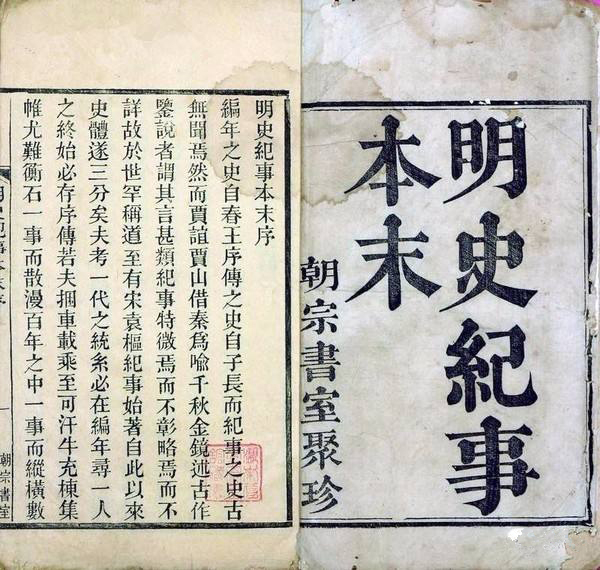 明史紀事
本末
朝宗書室聚珍
明史紀事本末序
編年之史自春王序傳之史自子長而紀事之史古
無聞焉然而賈誼賈山借秦爲喻千秋金鏡述古作
鑒說者謂其言甚類紀事特微焉而不彰略焉而不
詳故於世罕稱道至有宋袁樞紀事始著自此以來
史體遂三分矣夫考一代之統系必在編年尋一人
之終始必存序傳若夫捆車載乘至可汗牛充棟集
帷尤難衡石一事而散漫百年之中一事而縱橫數
一
朝宗書室